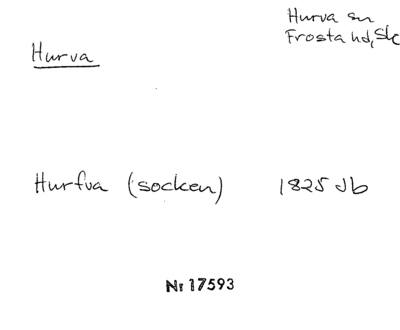 Hurva sn
Frosta hd, Sk
Hurva
Hurfva (socken) 1825 Jb
Nr 17593